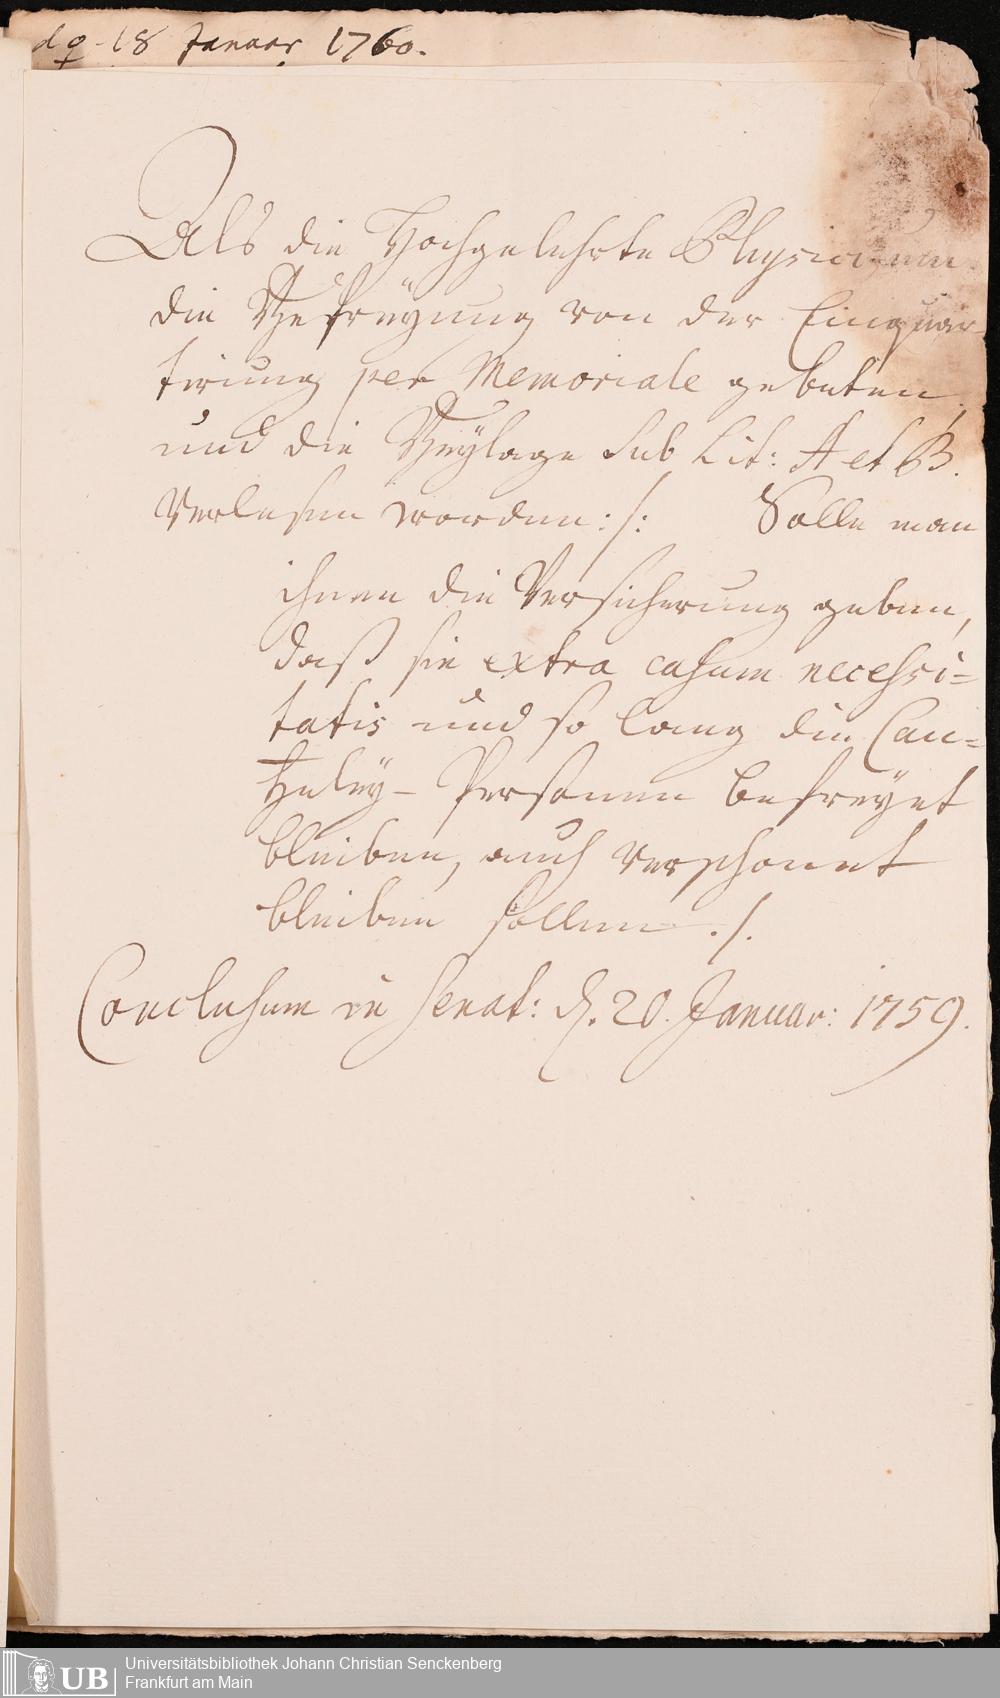 18 Januar 1760.
Als die Hochgelehrte Physicorum
die Befreyung von der Einquar-
tirung per Memoriale gebeten,
und die Beylage sub Lit: A et B.
verlesen worden :/: Solle man
ihnen die Versicherung geben,
daß sie extra casum necessi=
tatis und so lang die Can=
tzeleÿ-Personen befreyet
bleiben, auch verschonet
bleiben sollen ./.
Conclusum in Senat: d. 20. Januar: 1759.
UB
Universitätsbibliothek Johann Christian Senckenberg
Frankfurt am Main